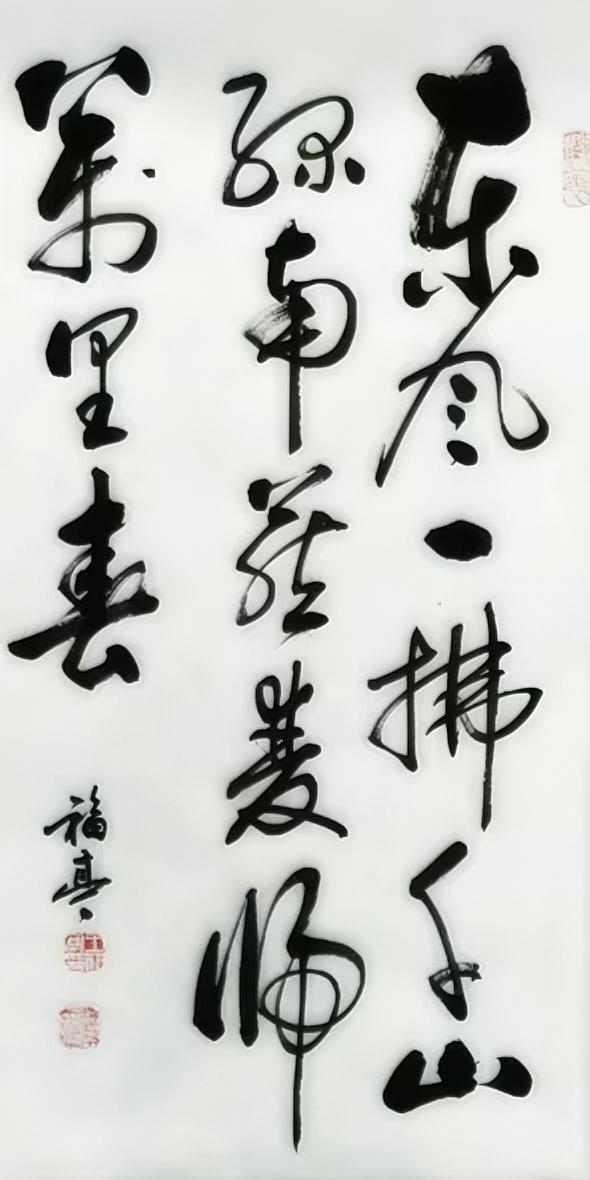 东风一拂千山
绿南燕雙归
萬里春
福真